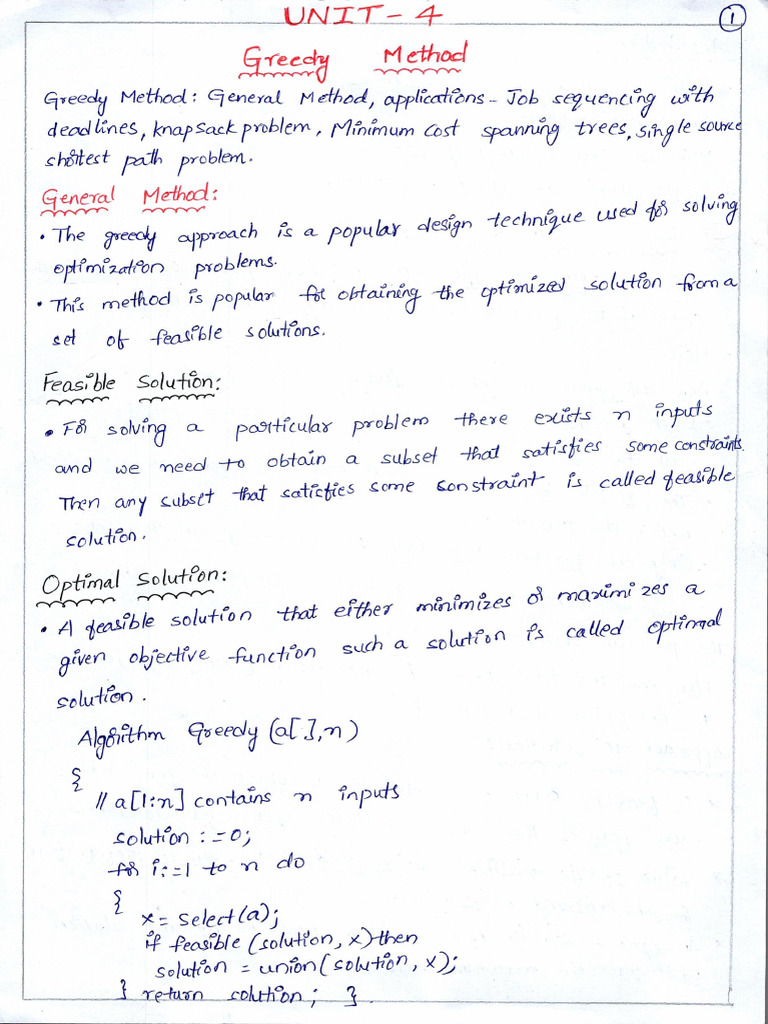 UNIT - 4
1
Greedy Method
Greedy Method: General Method, applications - Job sequencing with
deadlines, knapsack problem, Minimum cost spanning trees, single source
shortest path problem.
General Method:
• The greedy approach is a popular design technique used for solving
optimization problems.
• This method is popular for obtaining the optimized solution from a
set of feasible solutions.
Feasible Solution:
• For solving a particular problem there exists n inputs
and we need to obtain a subset that satisfies some constraints.
Then any subset that satisfies some constraint is called feasible
solution.
Optimal Solution:
• A feasible solution that either minimizes or maximizes a
given objective function such a solution is called optimal
solution.
Algorithm Greedy (a[ ], n)
{
// a[1:n] contains n inputs
solution := 0;
for i:=1 to n do
{
x = select(a);
if feasible (solution, x) then
solution = union(solution, x);
} return solution; }.